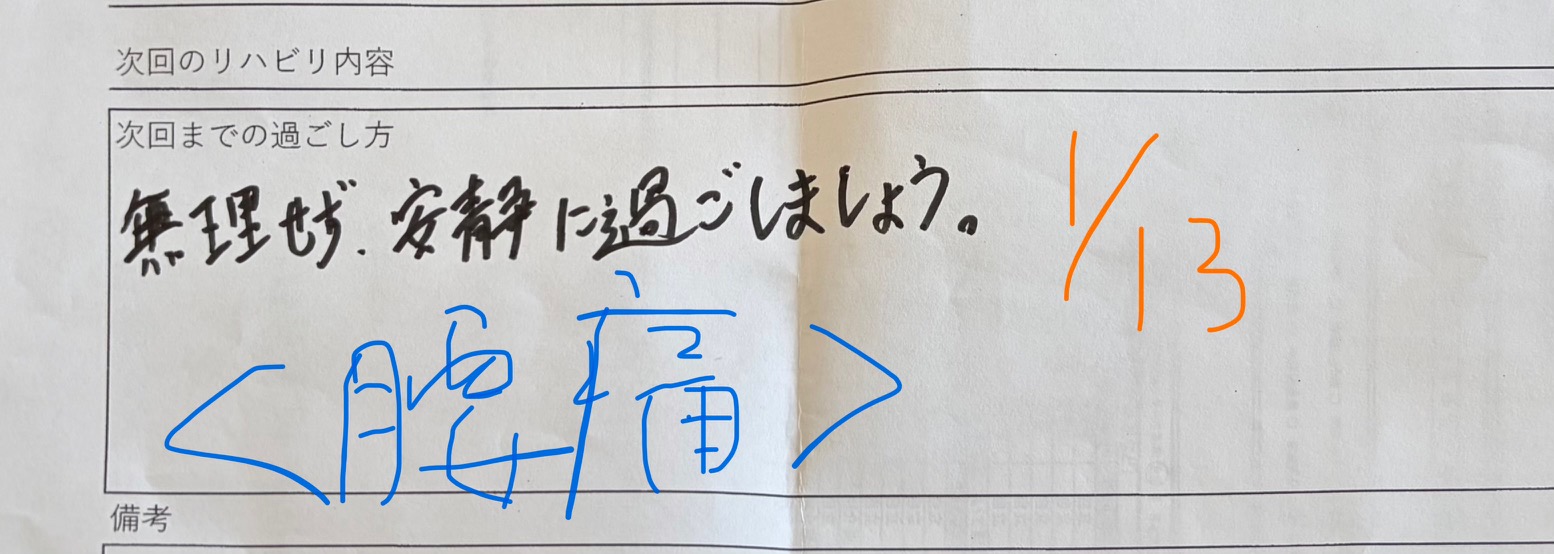 次回のリハビリ内容
次回までの過ごし方
無理せず、安静に過ごしましょう。
1/13
<腰痛>
備考